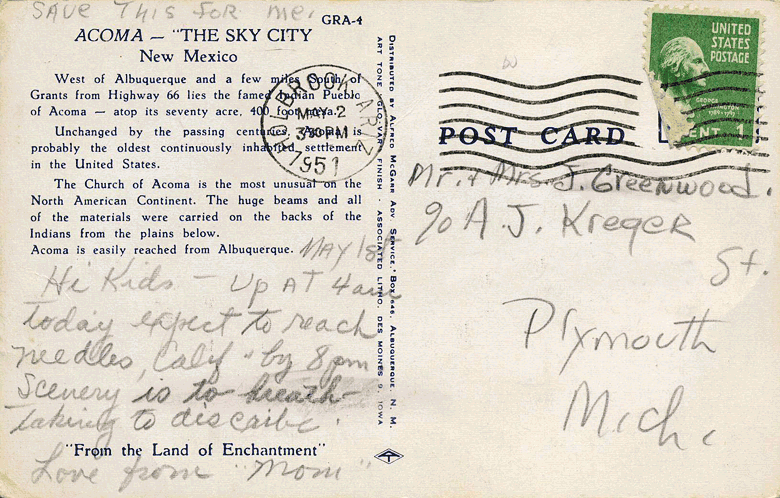 SAVE THIS FOR ME.
GRA-4
ACOMA — "THE SKY CITY
New Mexico
West of Albuquerque and a few miles South of
Grants from Highway 66 lies the famed Indian Pueblo
of Acoma — atop its seventy acre, 400 foot mesa.
Unchanged by the passing centuries, Acoma is
probably the oldest continuously inhabited settlement
in the United States.
The Church of Acoma is the most unusual on the
North American Continent. The huge beams and all
of the materials were carried on the backs of the
Indians from the plains below.
Acoma is easily reached from Albuquerque.
May 1st
Hi Kids — Up AT 4am
today expect to reach
needles, Calif. by 8pm
Scenery is to breath
taking to discribe.
"From the Land of Enchantment"
Love from "Mom"
DISTRIBUTED BY ALFRED MCGARR ADV SERVICE, BOX 646, ALBUQUERQUE, N. M.
ART TONE "GLO-VAR" FINISH - ASSOCIATED LITHO. DES MOINES 9, IOWA
HOLBROOK ARIZ
MAY 2
3 30 PM
1951
UNITED
STATES
POSTAGE
GEORGE
WASHINGTON
CENT 1
POST CARD
Mr. & Mrs. J. Greenwood.
℅ A. J. Kreger
St.
Plymouth
Mich.